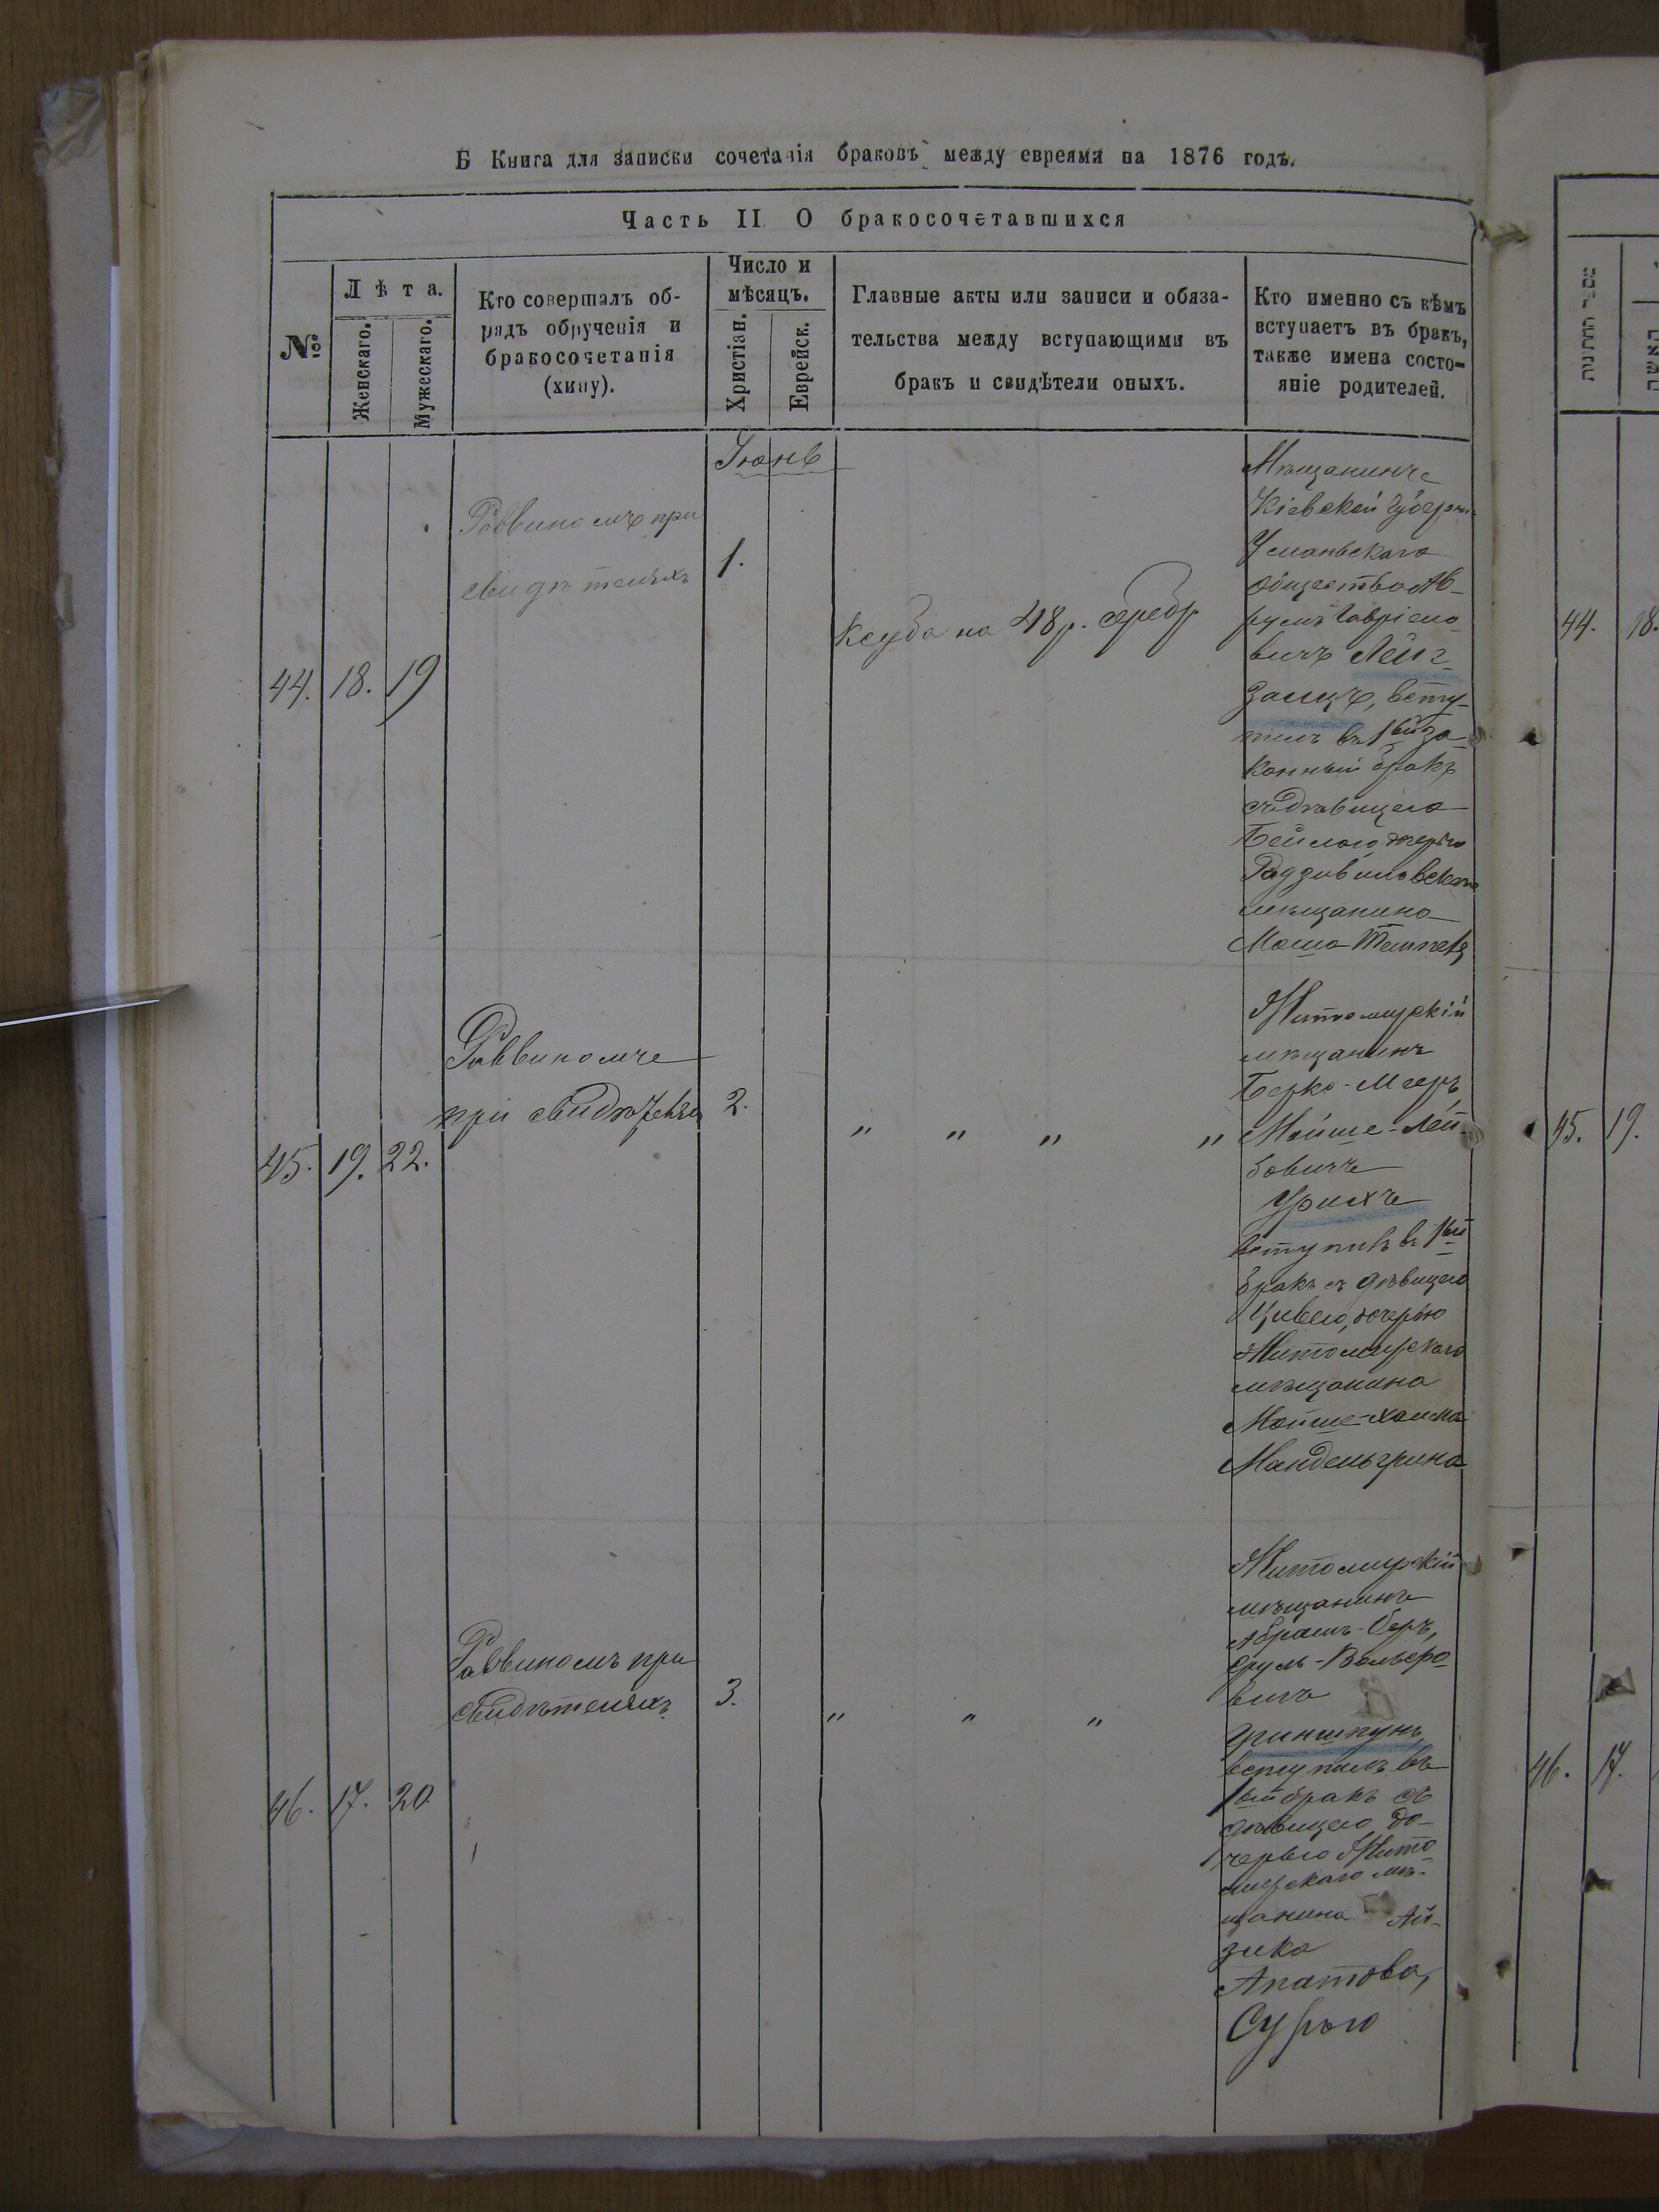 Б Книга для записки сочетанія браковъ между евреями на 1876 годъ.
Часть II О бракосочетавшихся
№
Лѣта.
Женскаго.
Мужескаго.
Кто совершалъ об-
рядъ обрученія и
бракосочетанія
(хипу).
Число и
мѣсяцъ.
Христіан.
Еврейск.
Главные акты или записи и обяза-
тельства между вступающими въ
бракъ и свидѣтели оныхъ.
Кто именно съ кѣмъ
вступаетъ въ бракъ,
также имена состо-
яніе родителей.
Іюнь
44. 18. 19
Раввиномъ при
свидѣтеляхъ
1.
Ксуба на 48 р. серебр
Мѣщанинъ
Кіевской Губерніи
Уманьскаго
общества Аб-
румъ Гавріело-
вичъ Лейг-
замцъ, всту-
пилъ въ 1ый за-
конный бракъ
съ дѣвицею
Бейлою дочерью
Радзивиловскаго
мѣщанина
45. 19. 22.
Раввиномъ
при свидѣтеляхъ
2.
" " " "
Житомирскій
мѣщанинъ
Берко-Мееръ
Мойше-Лей-
бовичъ
Урихъ
вступилъ въ 1ый
бракъ съ дѣвицею
Цивею, дочерью
Житомирскаго
мѣщанина
Мойше-Хаима
Мандельгрина
46. 17. 20
Раввиномъ при
свидѣтеляхъ
3.
" " "
Житомирскій
мѣщанинъ
Абрамъ-Беръ,
Сруль-Вольфо-
вичъ
Гриншпунъ
вступилъ въ
1ый бракъ съ
дѣвицею до-
черью Жито-
мирскаго мѣ-
щанина Ай-
зика
Апатова,
Сурою
מספר החתונות
האשה
44. 18.
45. 19.
46. 17.